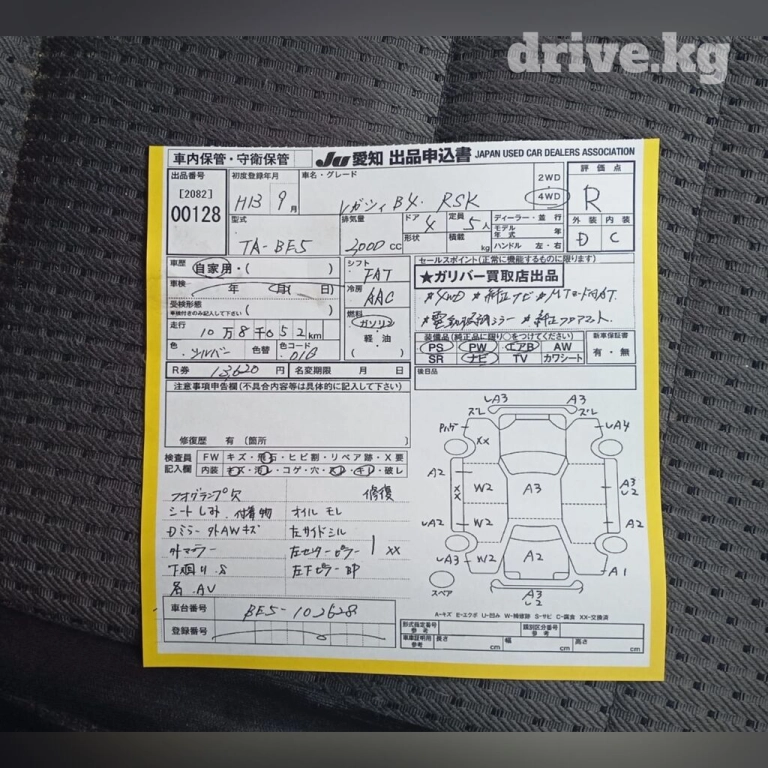 drive.kg
車内保管・守衛保管 JU 愛知 出品申込書 JAPAN USED CAR DEALERS ASSOCIATION
出品番号 初度登録年月 車名・グレード 2WD 評価点
[2082] H13 9月 レガシィ B4. RSK 4WD R
00128 型式 排気量 ドア 4 定員 5人 ディーラー・並行 外装 内装
TA-BE5 2000 CC 形状 積載 kg モデル年式 年 D C
ハンドル 左・右
車歴 自家用・( ) シフト FAT セールスポイント(正常に機能するものに限ります)
車検 年 (月) 日) 冷房 AAC ★ガリバー買取店出品
受検形態 #4WD #純正ナビ
車検付きのみ記入して下さい( ) 燃料
走行 10万8千052km ガソリン
色 色替 色コード 01G 軽・油
装備品(純正品に限り○をつけてください) 新車保証書
PS PW エアB AW 有・無
SR ナビ TV カワシート
R券 13620円 名変期限 月 日 後日品
注意事項申告欄(不具合内容等は具体的に記入して下さい)
修復歴 有 (箇所 )
検査員 FW キズ・飛石・ヒビ割・リペア跡・X要
記入欄 内装 キズ・汚レ・コゲ・穴・スレ・キレ・破レ
フォグランプ欠 修復
シートしみ. 付着物 オイルモレ
Dミラー外AWキズ 左サイドシル
外マフラー 左センターピラー XX
下回りS
名. AV
車台番号 BE5-102628
登録番号
LA3 A3
ズレ ズレ
XX LA4
A2 XX W2 A3 A3
U2
LA2 W2 A2
LA3 W2 A2 A1
スペア A3
U2
A-キズ E-エクボ U-凹み W-補修跡 S-サビ C-腐食 XX-交換済
形式指定番号 参考 類別区分番号 参考
車庫証明用 参考 長さ cm 幅 cm 高さ cm